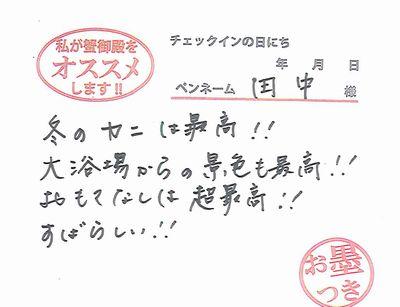 私が蟹御殿を
オススメ
します!!
チェックインの日にち
年 月 日
ペンネーム 田中 様
冬のカニは最高!!
大浴場からの景色も最高!!
おもてなしは超最高!!
すばらしい!!
お墨
つき